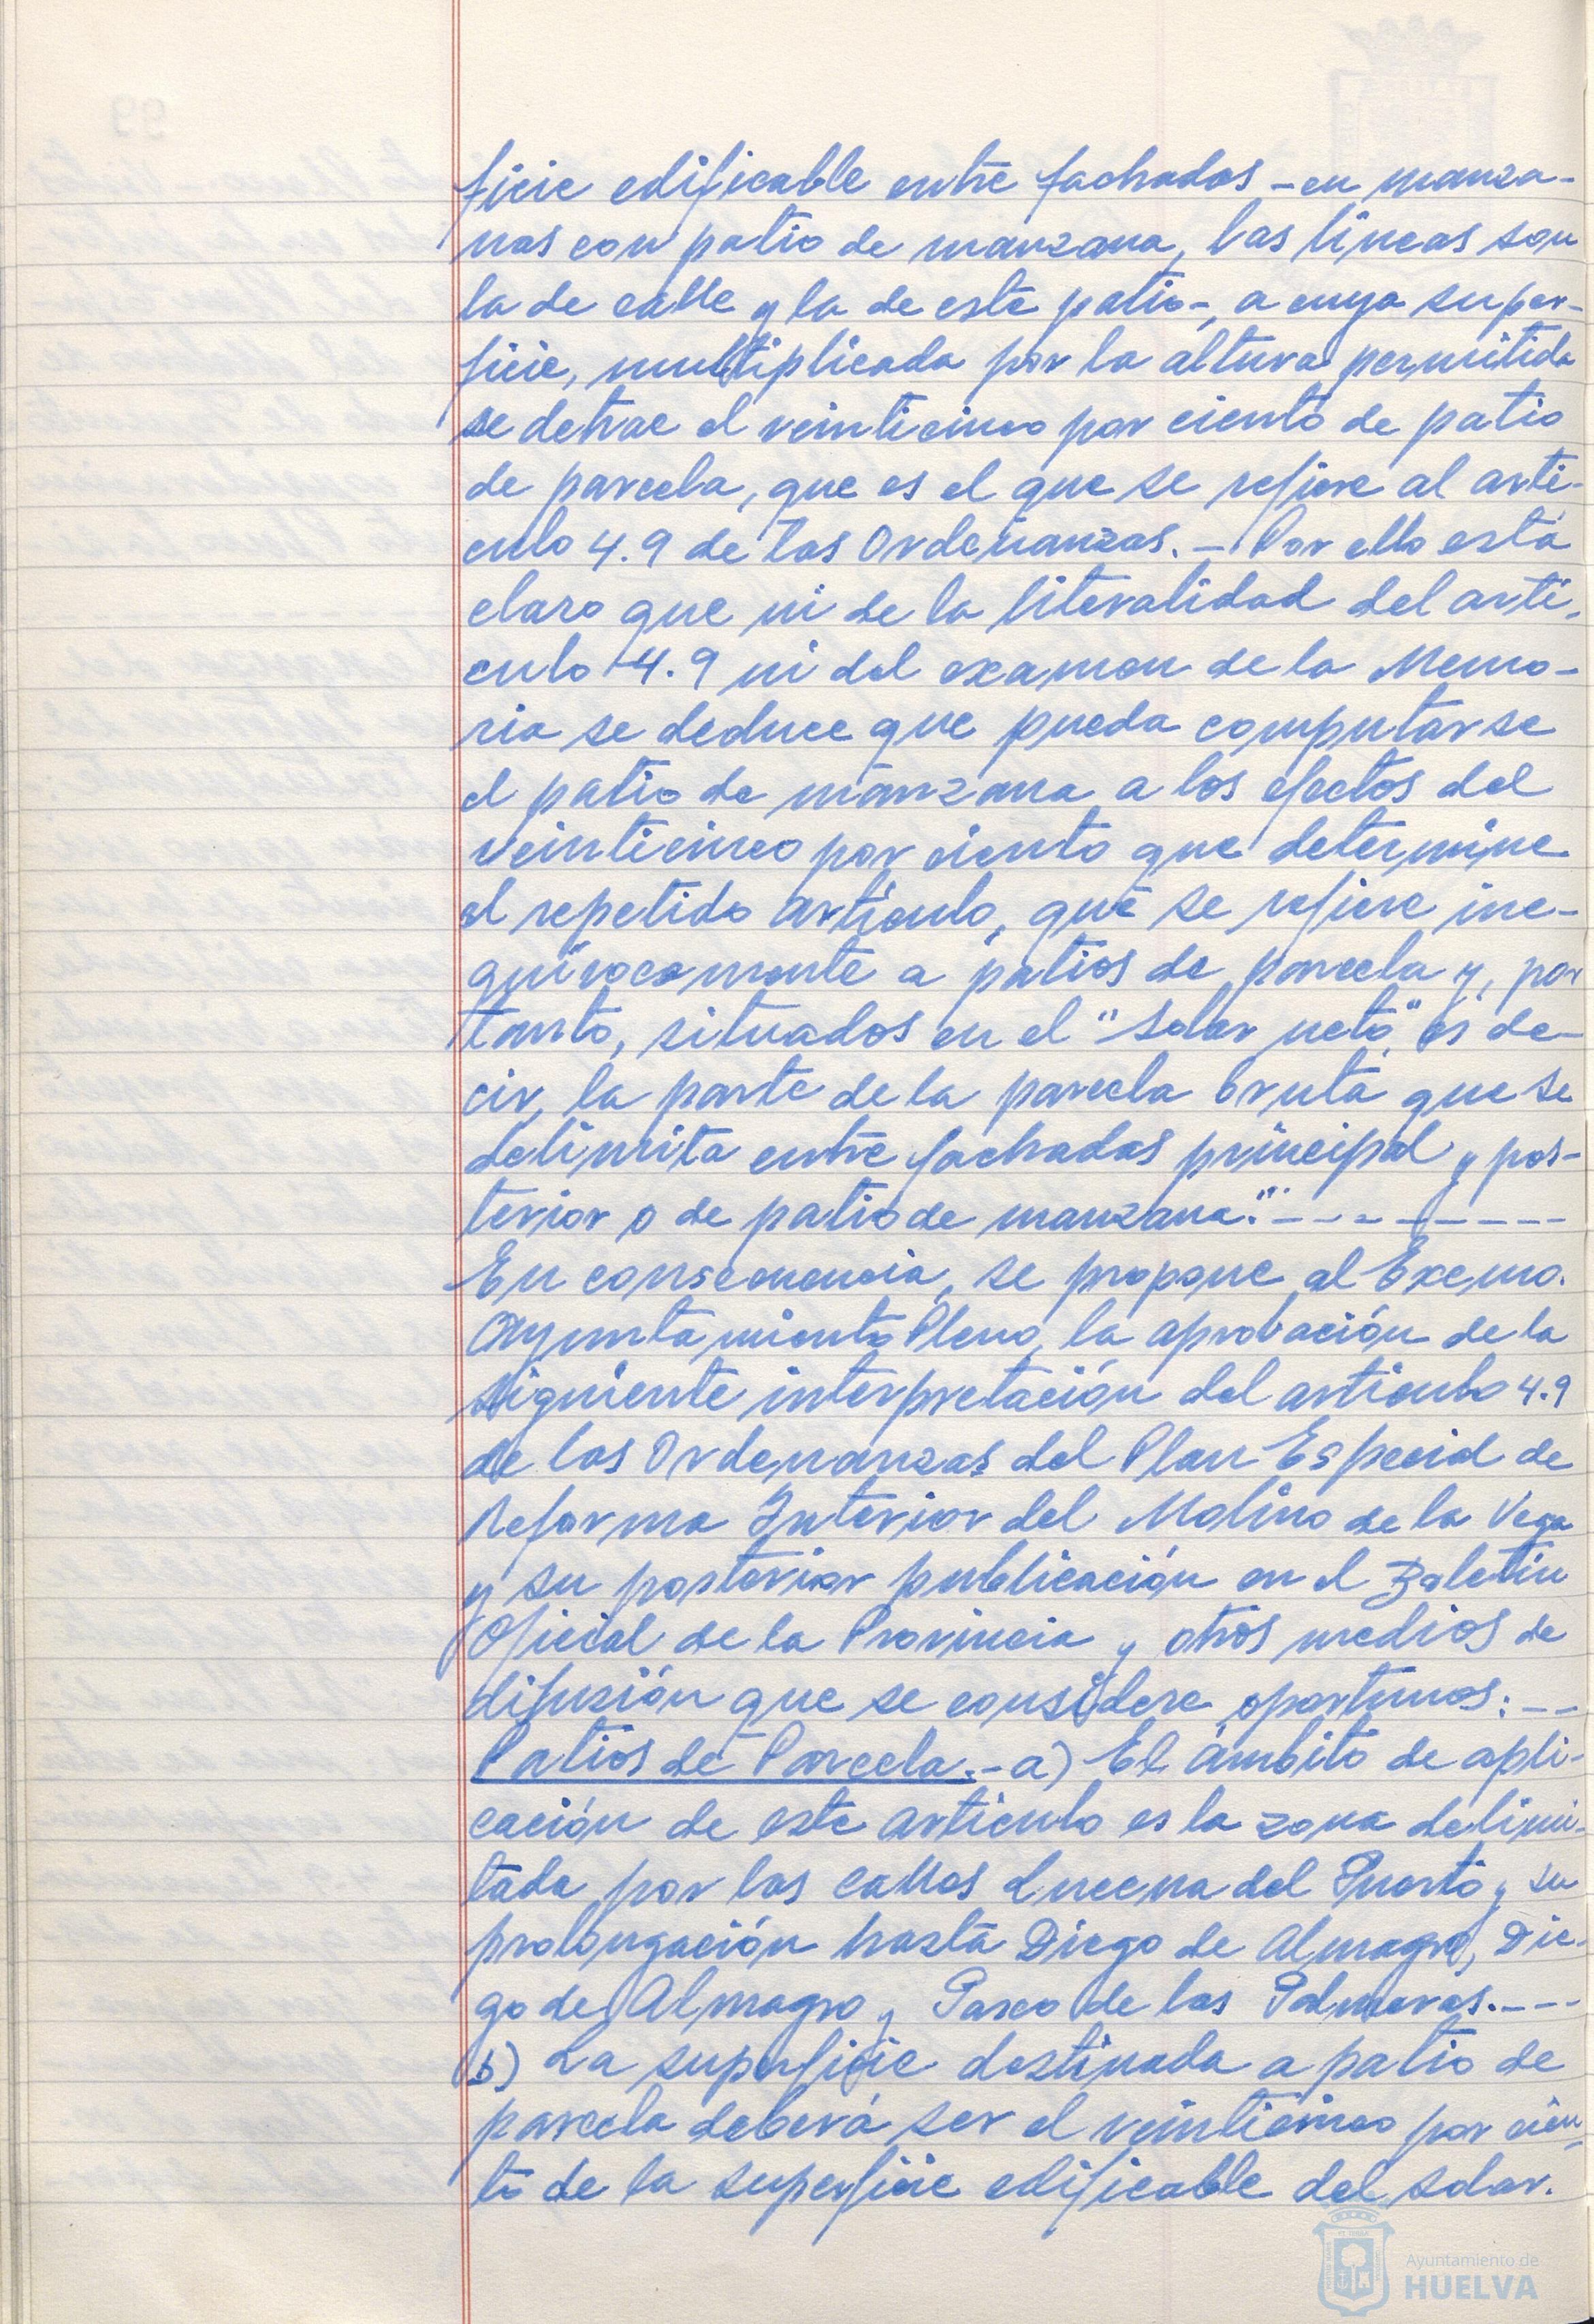 ficie edificable entre fachadas -en manza-
nas con patio de manzana, las líneas son
la de calle y la de este patio-, a cuya super-
ficie, multiplicada por la altura permitida
se detrae el veinticinco por ciento de patio
de parcela, que es el que se refiere al artí-
culo 4.9 de las Ordenanzas.- Por ello está
claro que ni de la literalidad del artí-
culo 4.9 ni del examen de la Memo-
ria se deduce que pueda computarse
el patio de manzana a los efectos del
veinticinco por ciento que determine
el repetido artículo, que se refiere ine-
quívocamente a patios de parcela y, por
tanto, situados en el "solar neto" es de-
cir, la parte de la parcela bruta que se
delimita entre fachadas principal y pos-
terior o de patio de manzana."- - - - - - -
En consecuencia, se propone al Excmo.
Ayuntamiento Pleno, la aprobación de la
siguiente interpretación del artículo 4.9
de las Ordenanzas del Plan Especial de
Reforma Interior del Molino de la Vega
y su posterior publicación en el Boletín
Oficial de la Provincia y otros medios de
difusión que se considere oportunos: - -
Patios de Parcela.- a) El ámbito de apli-
cación de este artículo es la zona delimi-
tada por las calles Lucena del Puerto y su
prolongación hasta Diego de Almagro, Die-
go de Almagro y Paseo de las Palmeras.- - -
b) La superficie destinada a patio de
parcela deberá ser el veinticinco por cien-
to de la superficie edificable del solar.
Ayuntamiento de
HUELVA